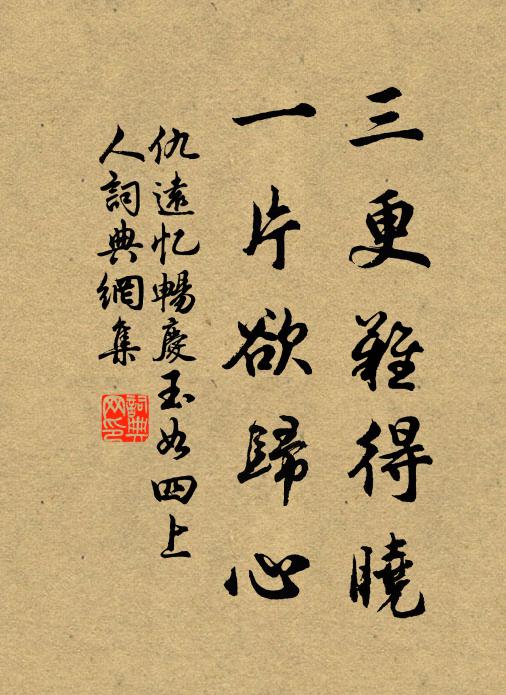 三更難得曉
一片欲歸心
仇遠忆暢慶玉如四上
人詞典網集
詞典网印